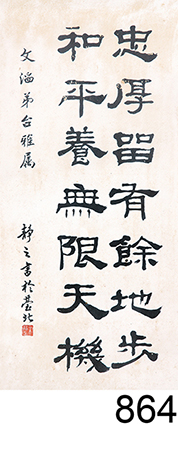 忠厚留有餘地步
和平養無限天機
文滔弟台雅属
靜之書於臺北
864